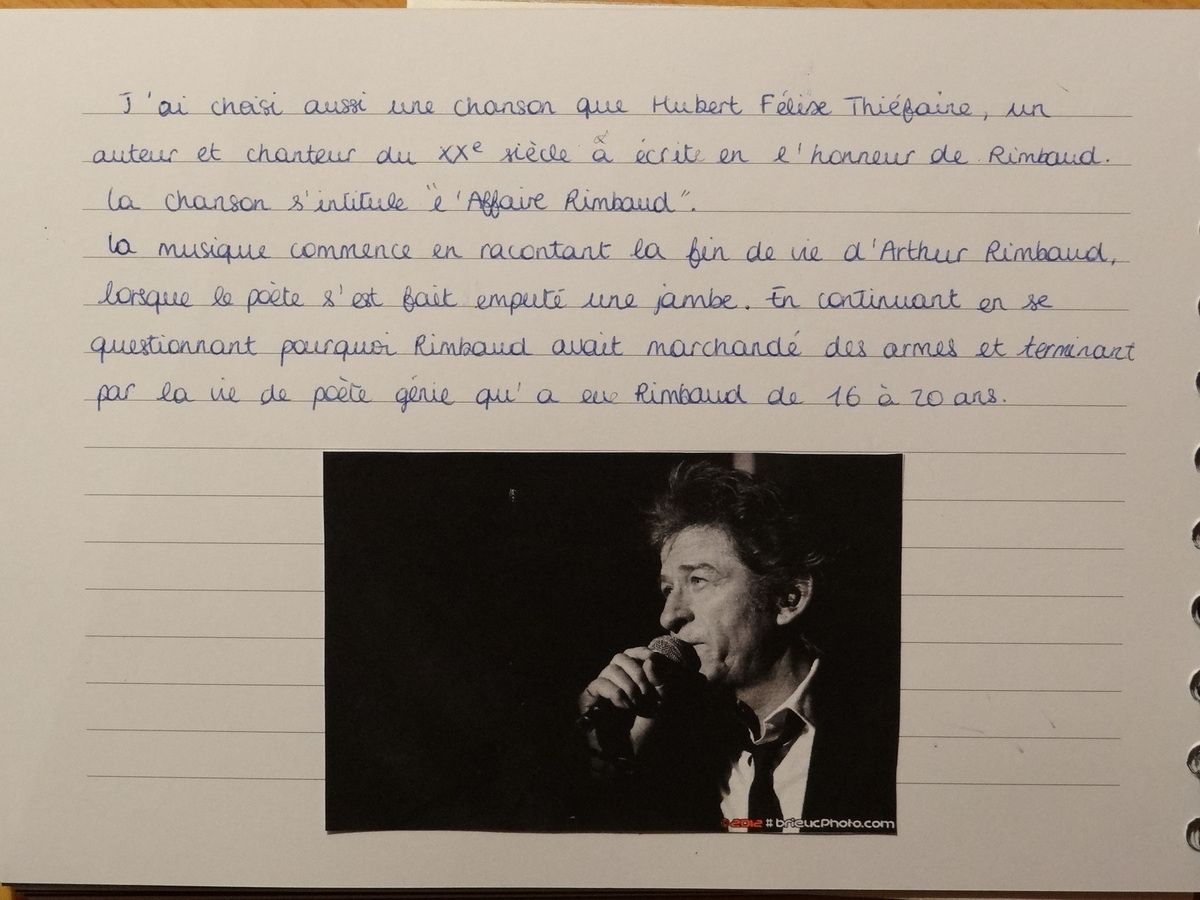 J'ai choisi aussi une chanson que Hubert Félixe Thiéfaine, un
auteur et chanteur du XXe siècle à écrite en l'honneur de Rimbaud.
La chanson s'intitule "l'Affaire Rimbaud".
La musique commence en racontant la fin de vie d'Arthur Rimbaud,
lorsque le poète s'est fait emputé une jambe. En continuant en se
questionnant pourquoi Rimbaud avait marchandé des armes et terminant
par la vie de poète génie qu'a eue Rimbaud de 16 à 20 ans.
©2012 #brieucPhoto.com